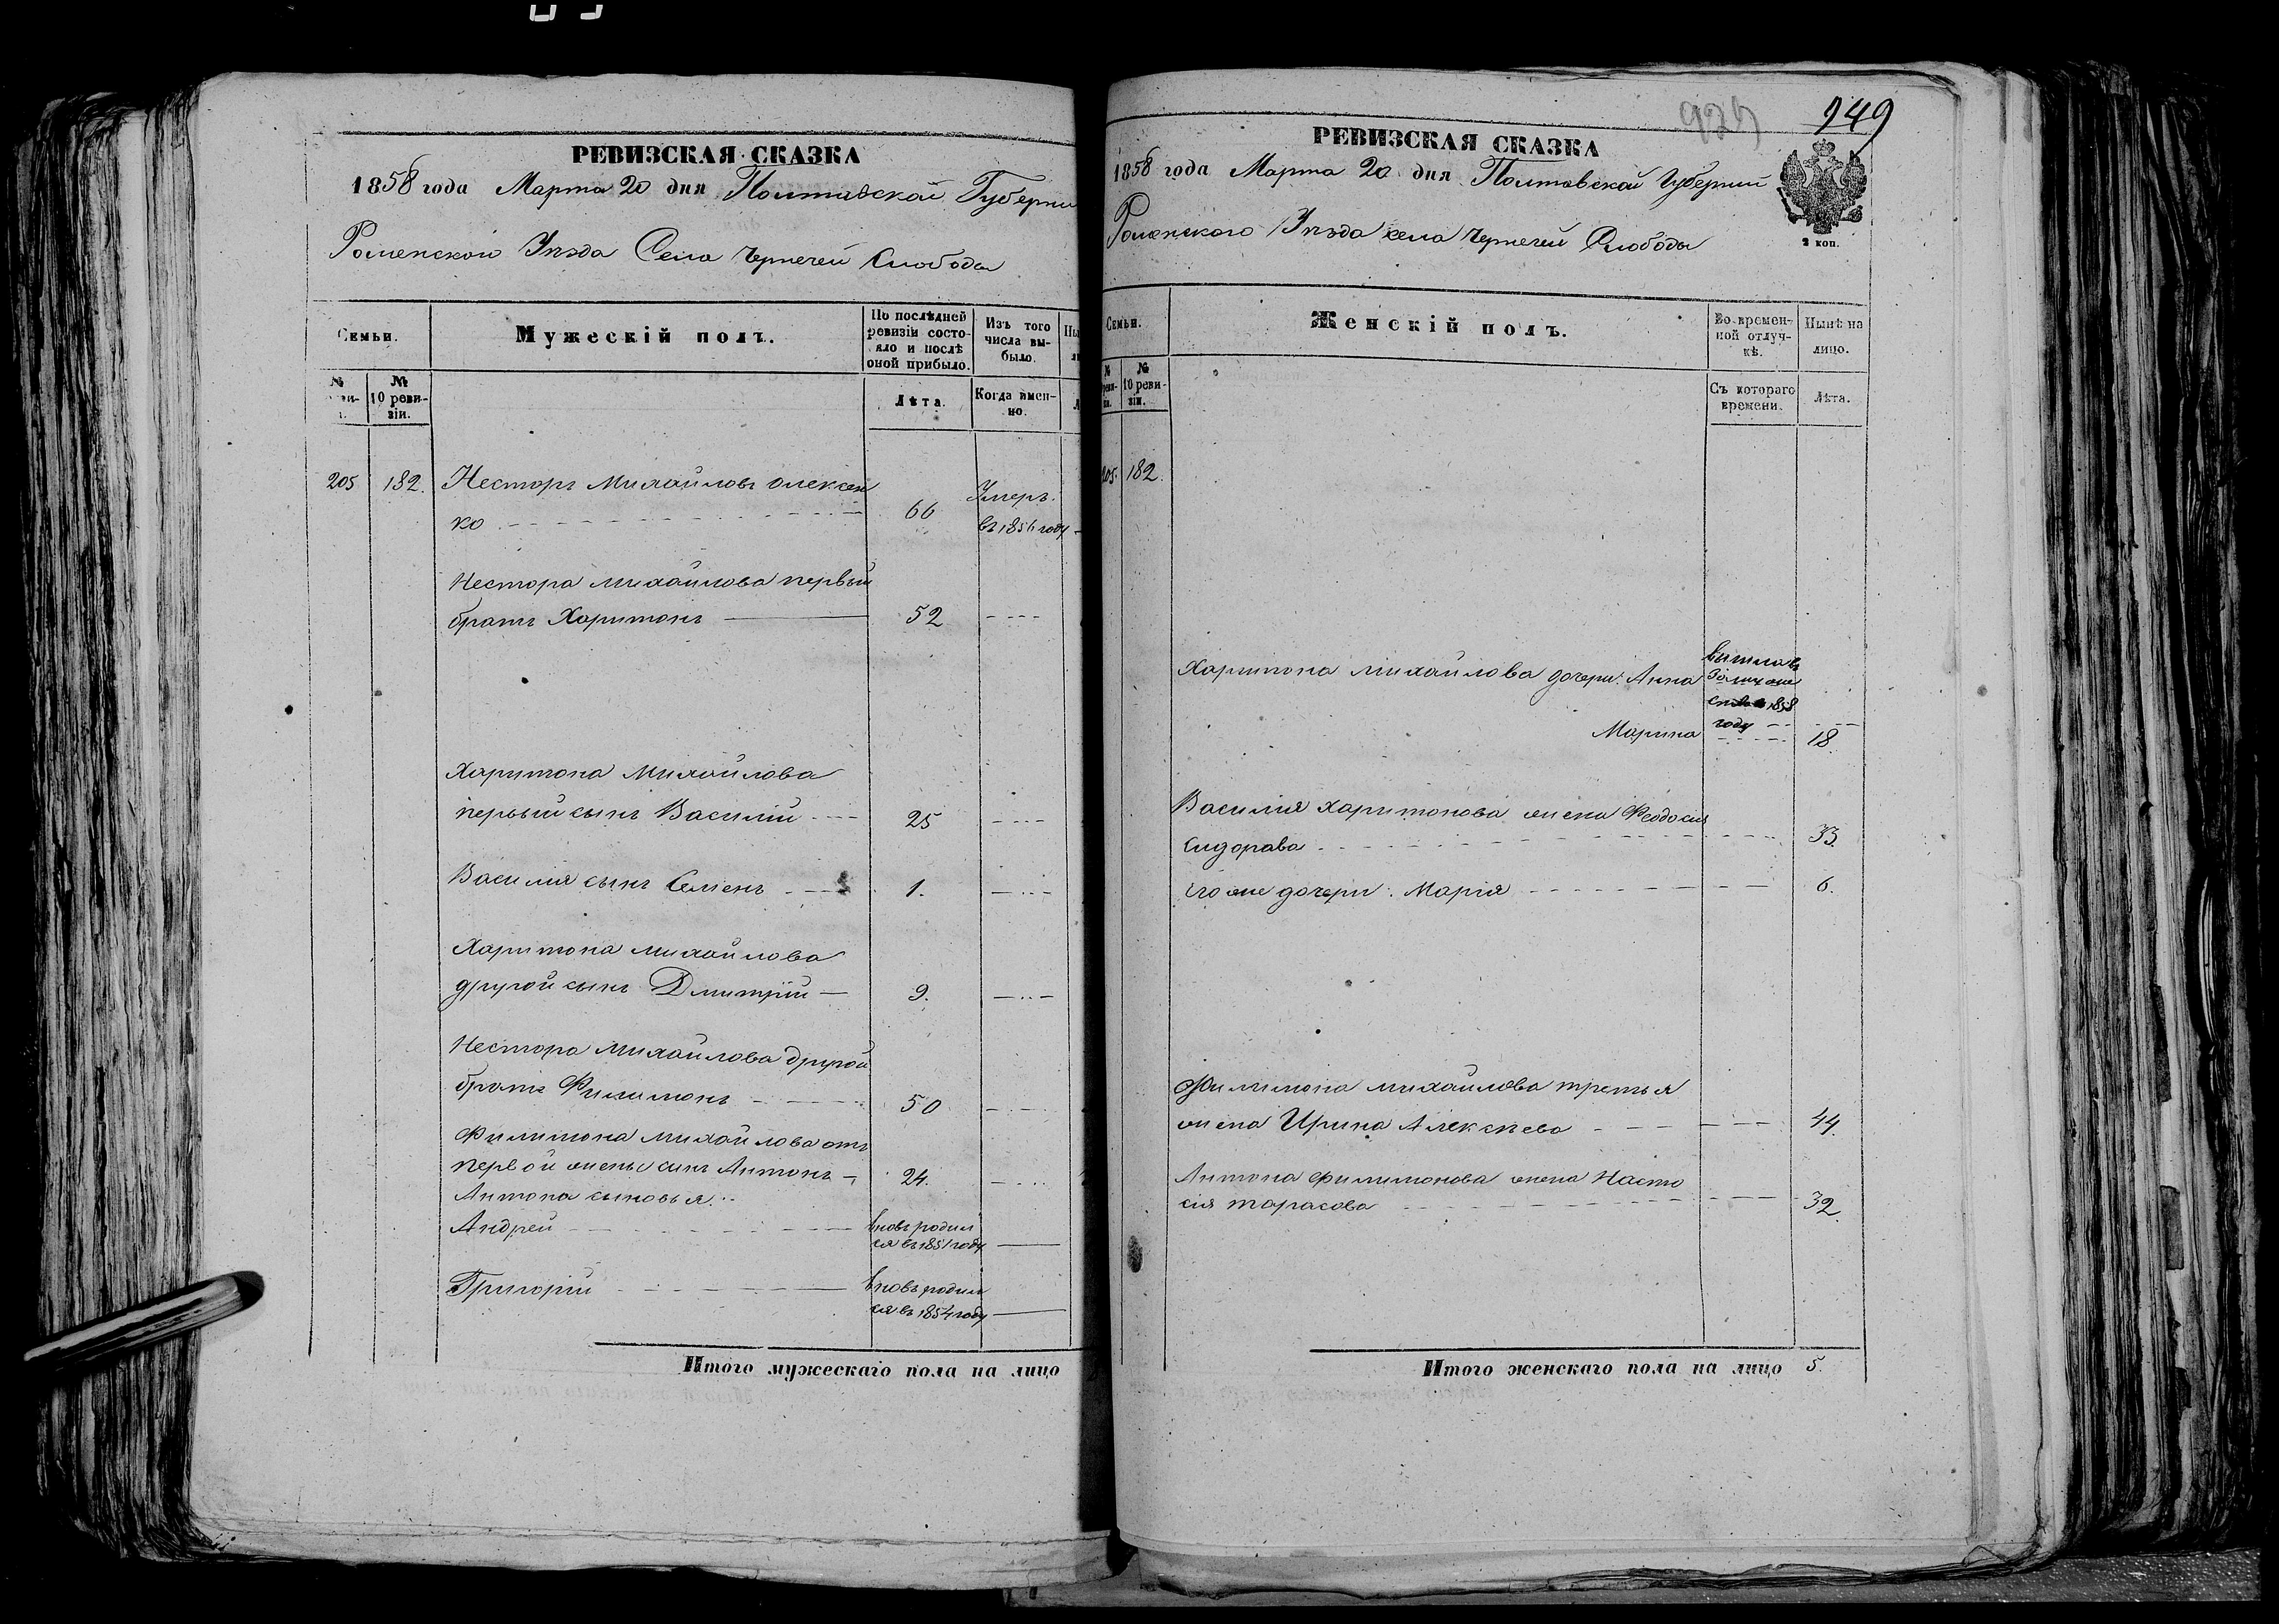 РЕВИЗСКАЯ СКАЗКА
1858 года Марта 20 дня Полтавской Губерни
Роменского Уѣзда Села Чернечей Слободы
Семьи.
Мужескій полъ.
По послѣдней ревизіи состояло и послѣ оной прибыло.
Изъ того числа выбыло.
№
№ 10 ревизіи.
Лѣта.
Когда именно.
205 182. Несторъ Михайловъ Олексен
ко 66 Умеръ.
въ 1856 году
Нестора Михайлова первый
братъ Харитонъ 52
Харитона Михайлова
первый сынъ Василій 25
Василія сынъ Семенъ 1.
Харитона Михайлова
другой сынъ Дмитрій 9.
Нестора Михайлова другой
братъ Филимонъ 50
Филимона Михайлова отъ
первой жены сынъ Антонъ 24.
Антона сыновья:
Андрей вновь родил
ся въ 1851 году
Григорій вновь родил
ся въ 1854 году
Итого мужескаго пола на лицо
949
РЕВИЗСКАЯ СКАЗКА
1858 года Марта 20 дня Полтавской Губерніи
Роменского Уѣзда села Чернечей Слободы
2 коп.
Семьи.
Женскій полъ.
Во временной отлучкѣ.
Нынѣ на лицо.
№
№ 10 ревизіи.
Съ котораго времени.
Лѣта.
205. 182.
Харитона Михайлова дочери: Анна
вышла въ
1858
году
Марина 18.
Василія Харитонова жена Феодосия
Сидорава 33.
Его же дочери: Марія 6.
Филимона Михайлова третья
жена Ирина Алексѣева 44.
Антона Филимонова жена Наста
сія Тарасова 32.
Итого женскаго пола на лицо 5.